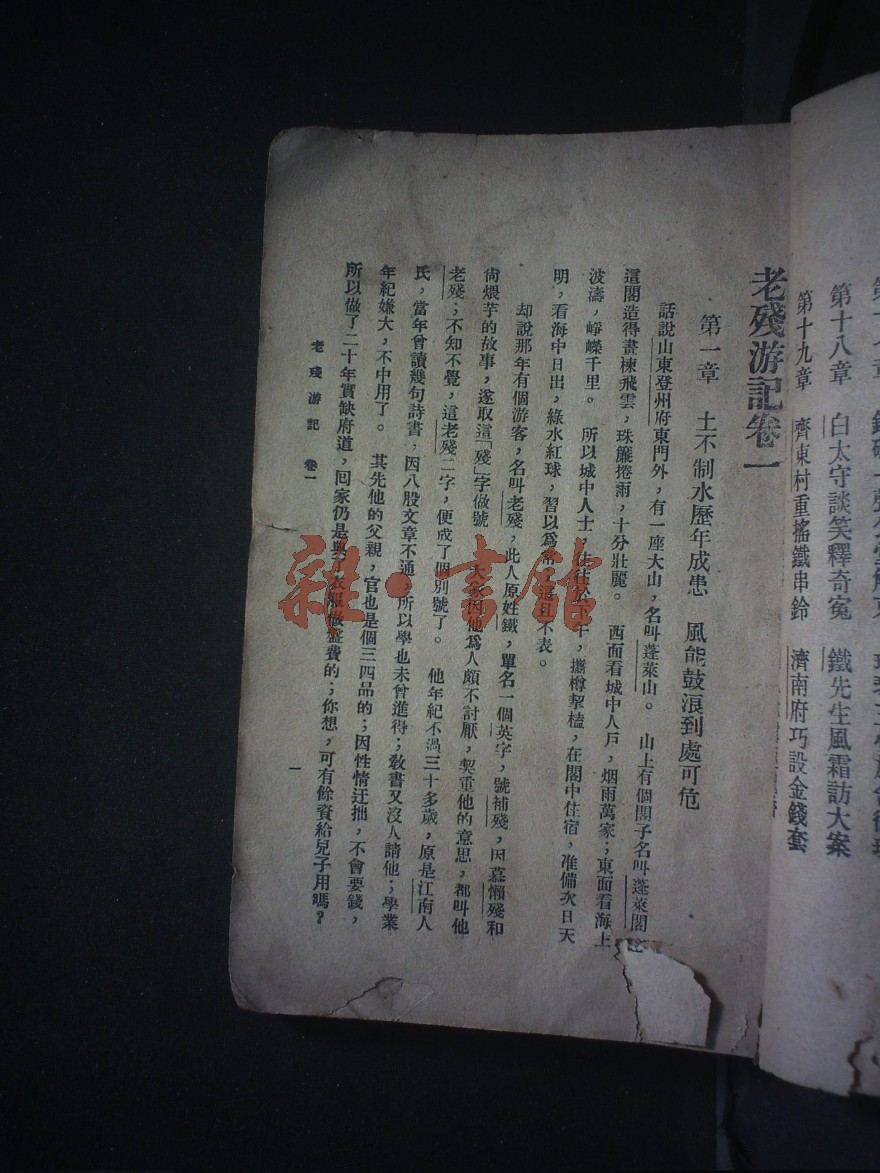 第十八章　白太守談笑釋奇寃　鐵先生風霜訪大案
第十九章　齊東村重搖鐵串鈴　濟南府巧設金錢套
老殘游記卷一
第一章　土不制水歷年成患　風能鼓浪到處可危
話說山東登州府東門外，有一座大山，名叫蓬萊山。　山上有個閣子名叫蓬萊閣
這閣造得畫棟飛雲，珠簾捲雨，十分壯麗。　西面看城中人戶，烟雨萬家；東面看海上
波濤，崢嶸千里。　所以城中人士，往往於下午，攜樽挈榼，在閣中住宿，准備次日天
明，看海中日出，綠水紅球，習以爲常，這且不表。
却說那年有個游客，名叫老殘，此人原姓鐵，單名一個英字，號補殘，因慕懶殘和
尙煨芋的故事，遂取這「殘」字做號　大家因他爲人頗不討厭，契重他的意思，都叫他
老殘；不知不覺，這老殘二字，便成了個別號了。　他年紀不過三十多歲，原是江南人
氏，當年曾讀幾句詩書，因八股文章不通，所以學也未曾進得；敎書又沒人請他；學業
年紀嫌大，不中用了。　其先他的父親，官也是個三四品的；因性情迂拙，不會要錢，
所以做了二十年實缺府道，回家仍是典了衣服做盤費的；你想，可有餘資給兒子用嗎？
老殘游記　卷一
一
雜·書館